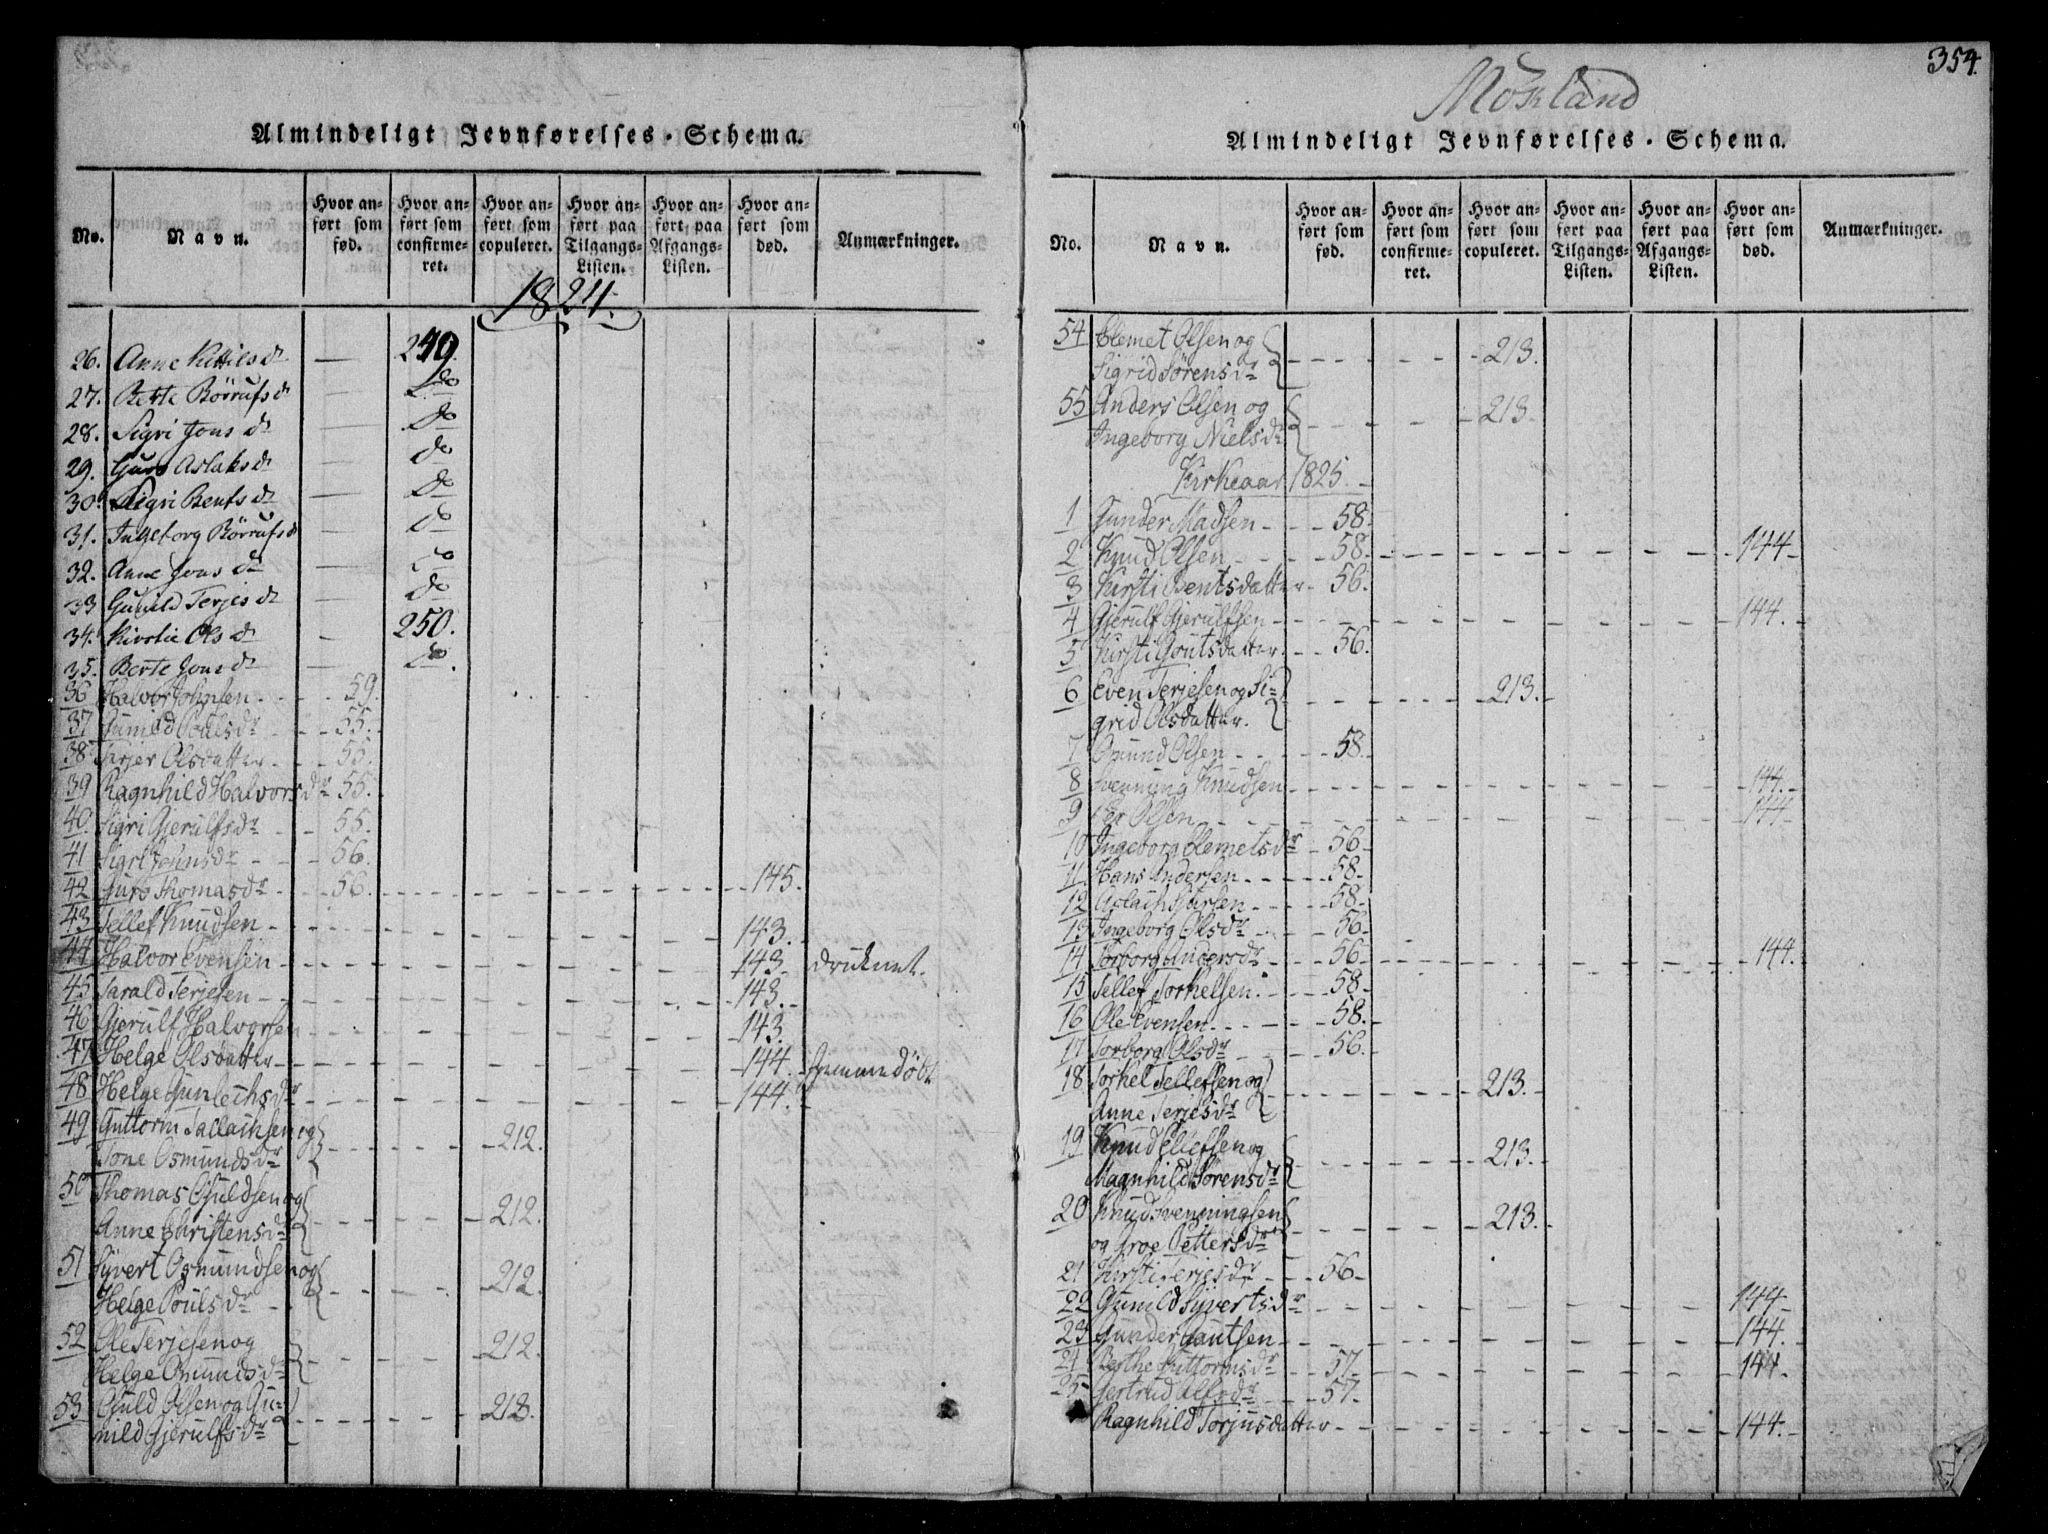 Almindeligt Jevnførelses-Schema.
No. Navn. Hvor anført som fød. Hvor anført som confirmeret. Hvor anført som copuleret. Hvor anført paa Tilgangs-Listen. Hvor anført paa Afgangs-Listen. Hvor anført som død. Anmærkninger.
1824.
26. Anne Kittils dr — 249.
27. Berte Börrufs dr — do
28. Sigri Jons dr — do
29. Guro Aslaks dr — do
30. Sigri Bents dr — do
31. Ingeborg Börrufs dr — do
32. Anne Jons dr — do
33 Gunild Terjes dr — do
34. Kirstie Ols dr — 250.
35. Berte Jons dr — do.
36 Halvor Johnsen - - 59.
37 Gunild Pouls dr - - 55.
38 Tarjer Olsdatter - - 55.
39 Ragnhild Halvors dr 55.
40. Sigri Gjerulfs dr - - 55.
41 Sigri Johns dr - - 56.
42 Guro Thomas dr - - 56. - - 145.
43 Tellef Knudsen - - 143.
44 Halvor Evensen - - 143. druknet.
45 Tarald Terjesen - - 143.
46 Gjerulf Halvorsen - - 143.
47 Helge Olsdatter - - 144.
48 Helge Gunleichs dr - - 144.
49 Guttorm Sallachsen og
Tone Osmunds dr } - - 212.
50 Thomas Ouldsen og
Anne Christens dr } - - 212.
51 Syvert Osmundsen og
Helge Pouls dr } - - 212.
52 Ole Terjesen og
Helge Osmunds dr } - - 212.
53 Ould Olsen og Gu-
nild Gjerulfs dr } - - 213.
354.
Moseland
Almindeligt Jevnførelses-Schema.
No. Navn. Hvor anført som fød. Hvor anført som confirmeret. Hvor anført som copuleret. Hvor anført paa Tilgangs-Listen. Hvor anført paa Afgangs-Listen. Hvor anført som død. Anmærkninger.
54 Clemet Olsen og
Sigrid Sörens dr } - - 213.
55 Anders Olsen og
Ingeborg Niels dr } - - 213.
Kirkeaar 1825.
1 Gunder Madsen - - 58.
2 Knud Olsen - - 58. - - 144
3 Kirsti Bentsdatter - 56.
4 Gjerulf Gjerulfsen - - 144.
5 Kirsti Goutsdatter - - 56.
6 Even Terjesen og Si-
grid Olsdatter. } - - 213.
7 Osmund Olsen - - 58.
8 Svenning Knudsen - - 144.
9 Per Olsen - - 144
10 Ingeborg Clemets dr - 56
11 Hans Andersen - - 58.
12 Aslach Sjursen - - 58.
13 Ingeborg Ols dr - - 56
14 Torborg Anders dr - - 56 - - 144.
15 Tellef Torkelsen - - 58
16 Ole Evensen - - 58.
17 Torborg Ols dr - - 56.
18 Torkel Tellefsen og
Anne Terjes dr } - - 213.
19 Knud Ellefsen og
Magnhild Sörens dr } - - 213.
20 Knud Svenningsen
og Groe Petters dr } - - 213.
21 Kirsti Terjes dr - - 56
22 Gunild Syverts dr - - 144
23 Gunder Gautsen - - 144.
24 Berthe Guttorms dr - - 57. - - 144
25 Gertrud Alfs dr - - 57.
Ragnhild Torjusdatter - - 144.